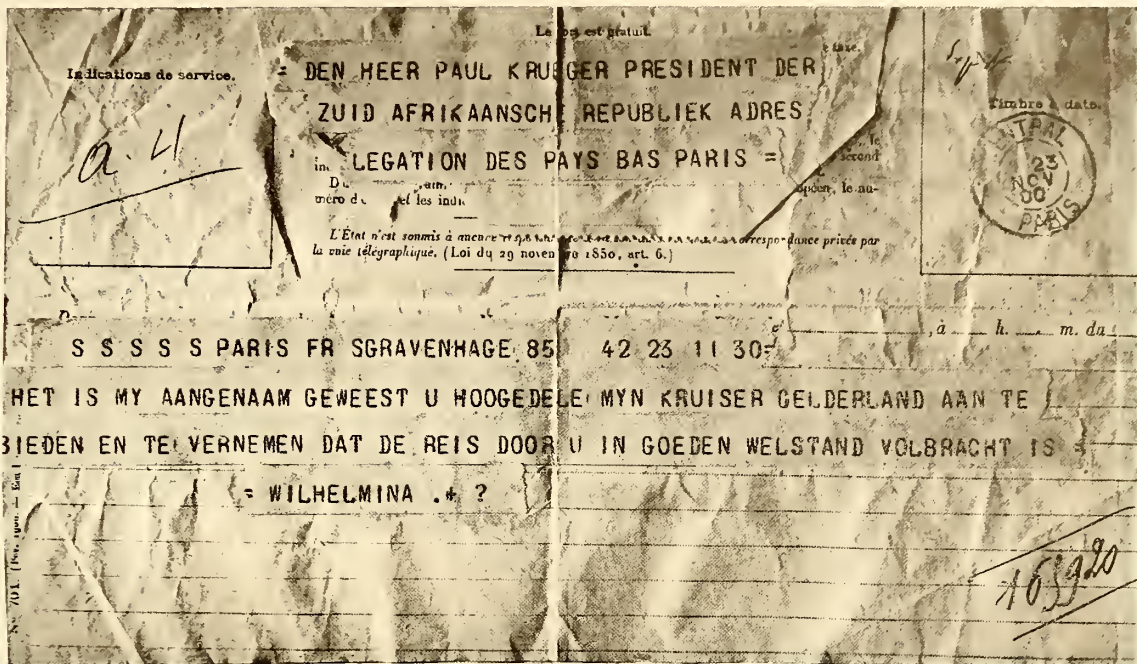 Le port est gratuit.
Indications de service.
= DEN HEER PAUL KRUEGER PRESIDENT DER
ZUID AFRIKAANSCHE REPUBLIEK ADRES
LEGATION DES PAYS BAS PARIS =
Timbre à date.
CENTRAL
23
NOV
00
PARIS
a. 4
méro d les indi
L'État n'est soumis à aucune correspondance privée par
la voie télégraphique. (Loi du 29 novembre 1850, art. 6.)
, à h. m. du
S S S S S PARIS FR SGRAVENHAGE 85 42 23 11 30=
HET IS MY AANGENAAM GEWEEST U HOOGEDELE MYN KRUISER GELDERLAND AAN TE
BIEDEN EN TE VERNEMEN DAT DE REIS DOOR U IN GOEDEN WELSTAND VOLBRACHT IS =
= WILHELMINA .+ ?
No 701.